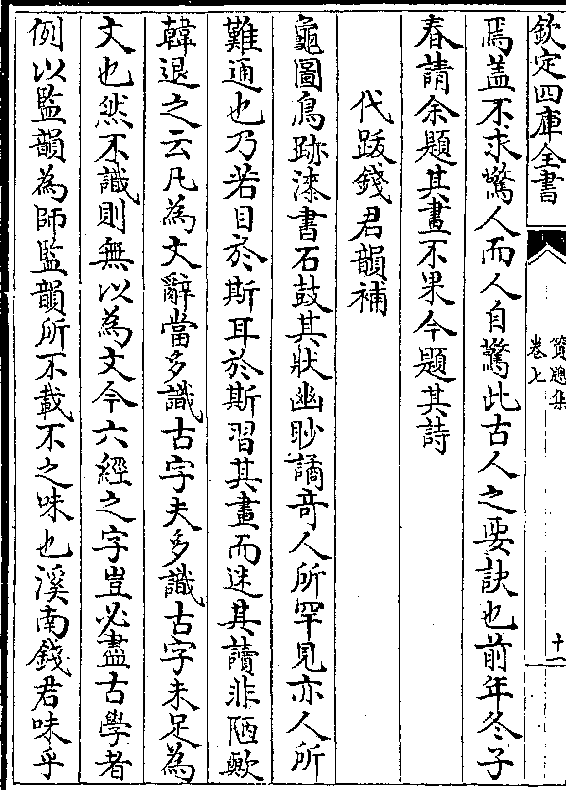 欽定四庫全書
篔𥮉集
卷七
十一
焉蓋不求驚人而人自驚此古人之要訣也前年冬子
春請余題其畫不果今題其詩
代跋錢君韻補
龜圖鳥跡漆書石鼓其狀幽眇譎奇人所罕見亦人所
難通也乃若目於斯耳於斯習其畫而迷其讀非陋歟
韓退之云凡為文辭當多識古字夫多識古字未足為
文也然不識則無以為文今六經之字豈必盡古學者
例以監韻為師監韻所不載不之味也溪南錢君味乎